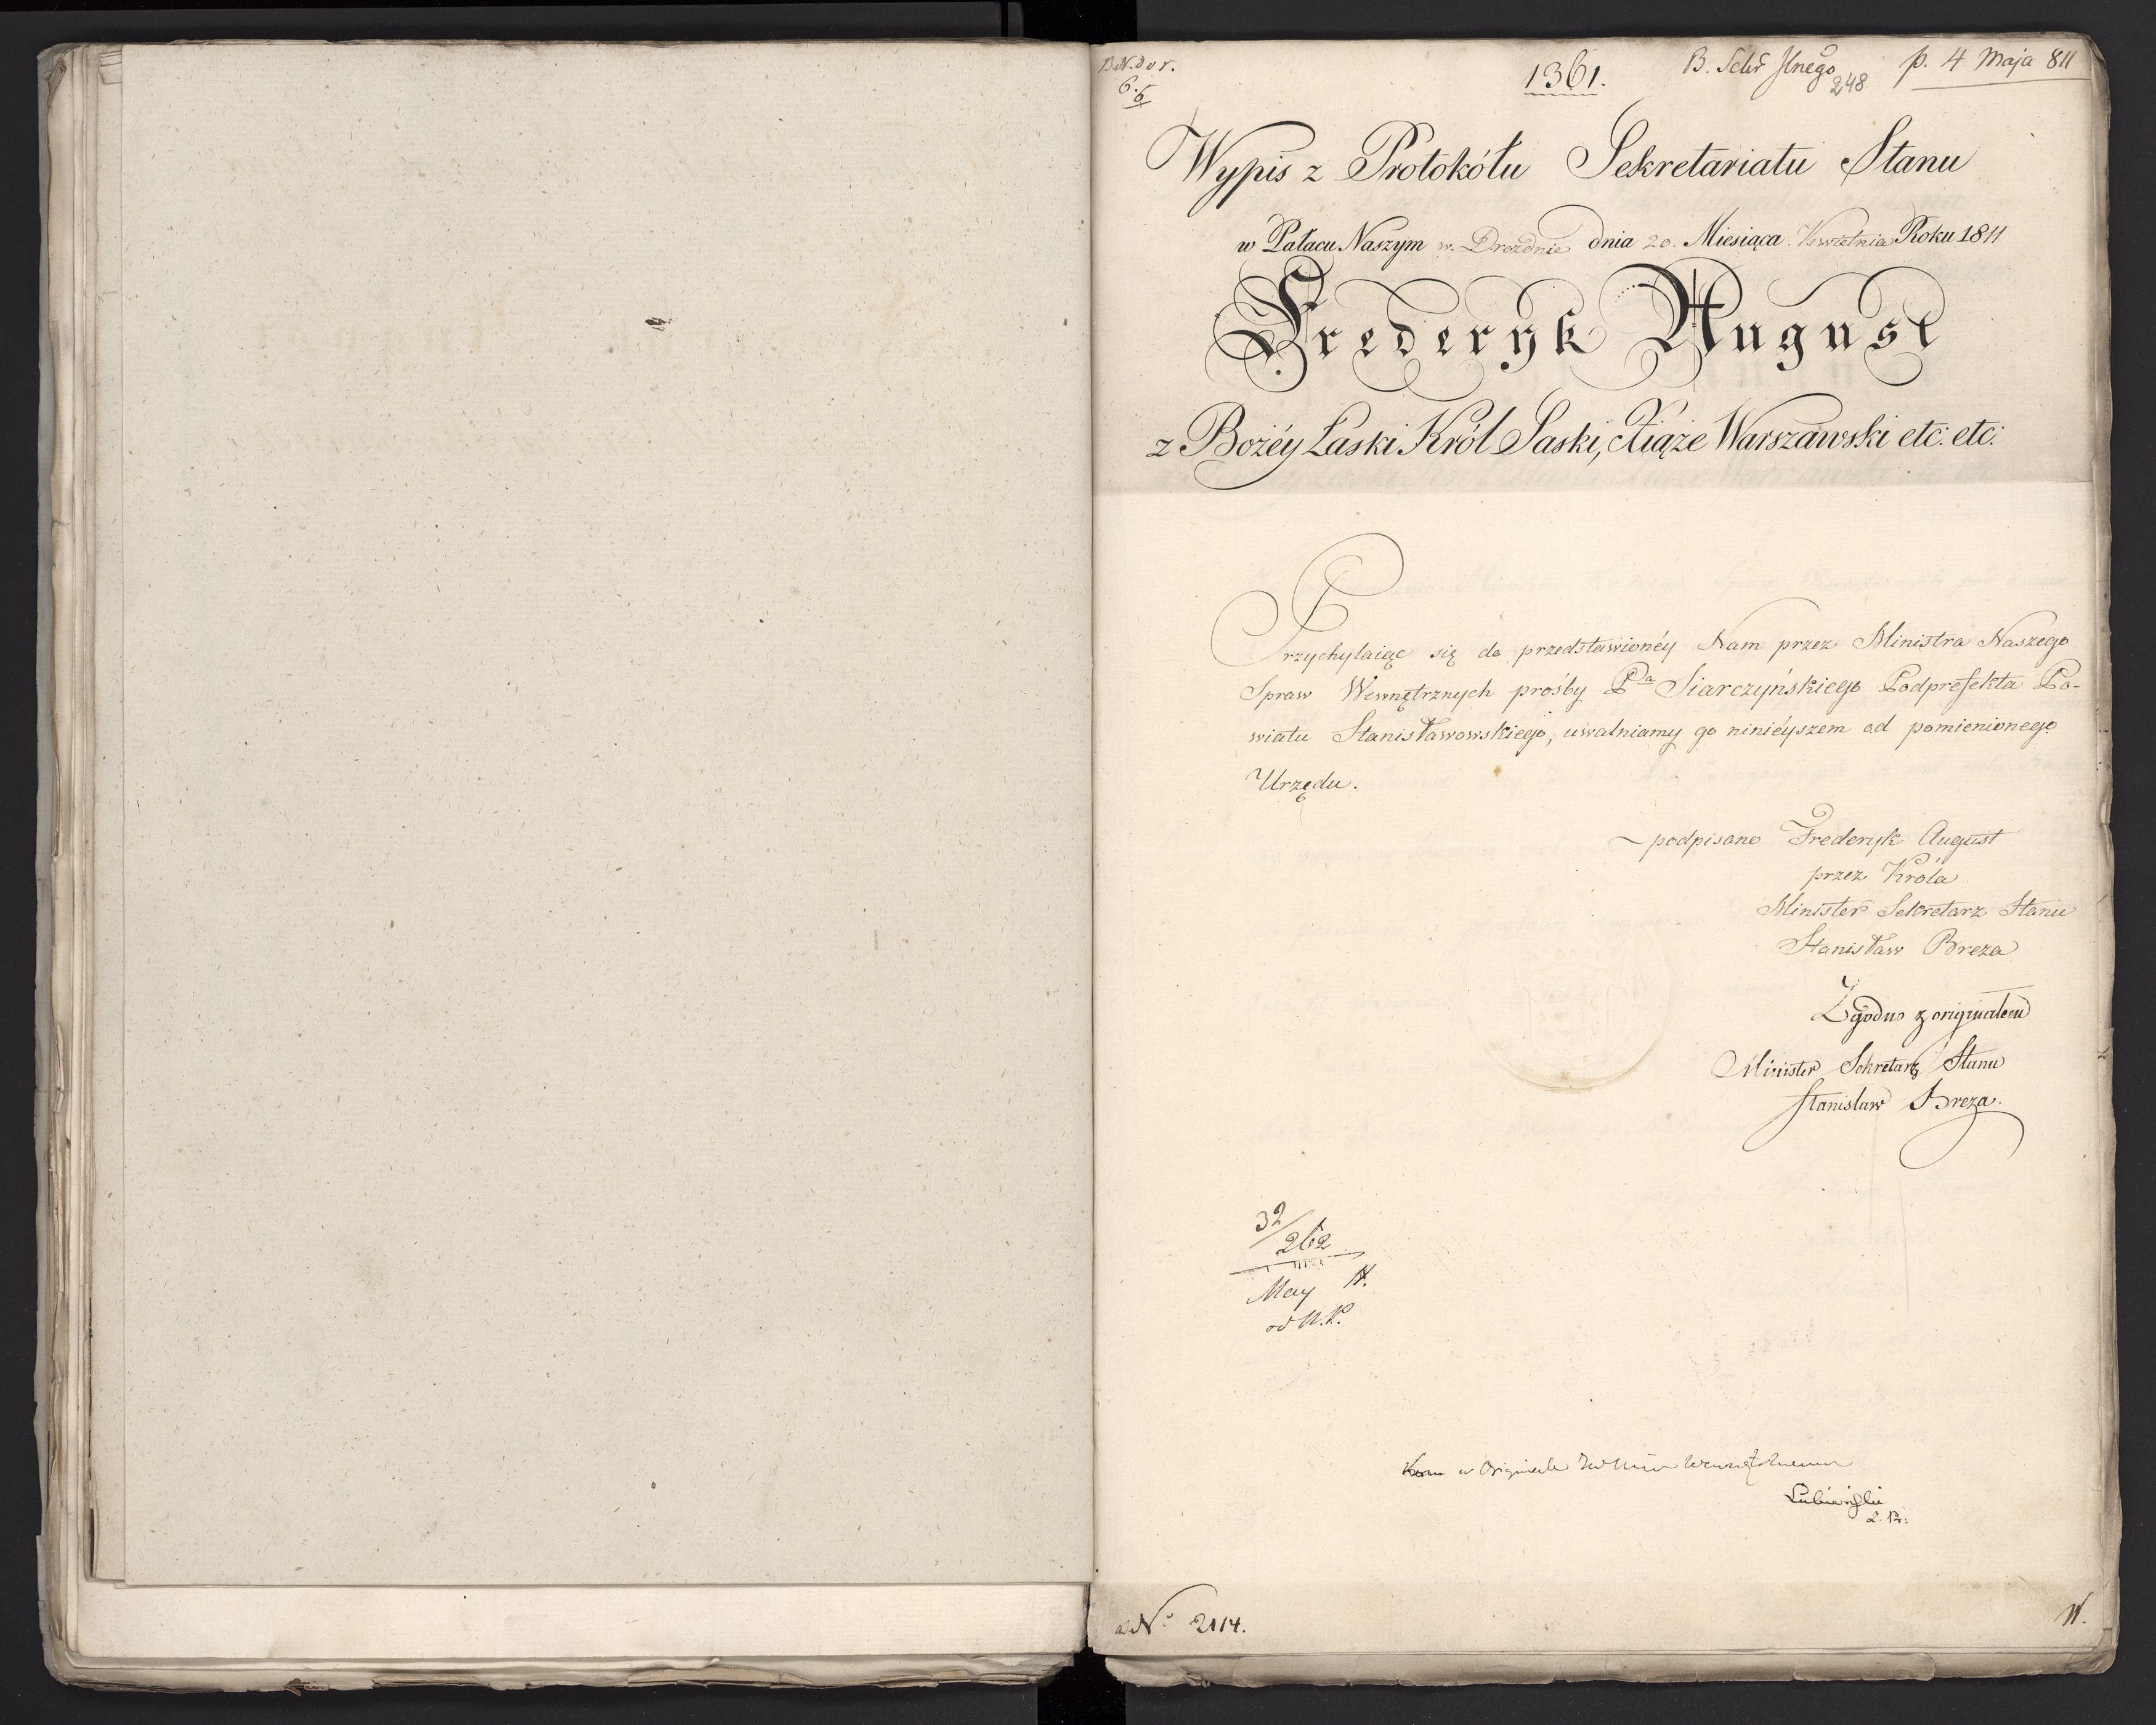 B.N. dor.
6.6
1361.
B. Sekr Jlnego
248
p. 4 Maja 811
Wypis z Protokółu Sekretariatu Stanu
w Pałacu Naszym w. Dreźdnie dnia 20. Miesiąca Kwietnia Roku 1811
Frederyk August
z Bożéy Łaski Król Saski, Xiąże Warszawski etc: etc:
Przychylaiąc się do przedstawionéy Nam przez Ministra Naszego
Spraw Wewnętrznych prośby Pna Siarczyńskiego Podprefekta Po-
wiatu Stanisławowskiego, uwalniamy go ninieyszem od pomienionego
Urzędu.
podpisano Frederyk August
przez Króla
Minister Sekretarz Stanu
Stanisław Breza
Zgodno z originałem
Minister Sekretarz Stanu
Stanisław Breza.
32/262
May
w Originale
a N° 2114.